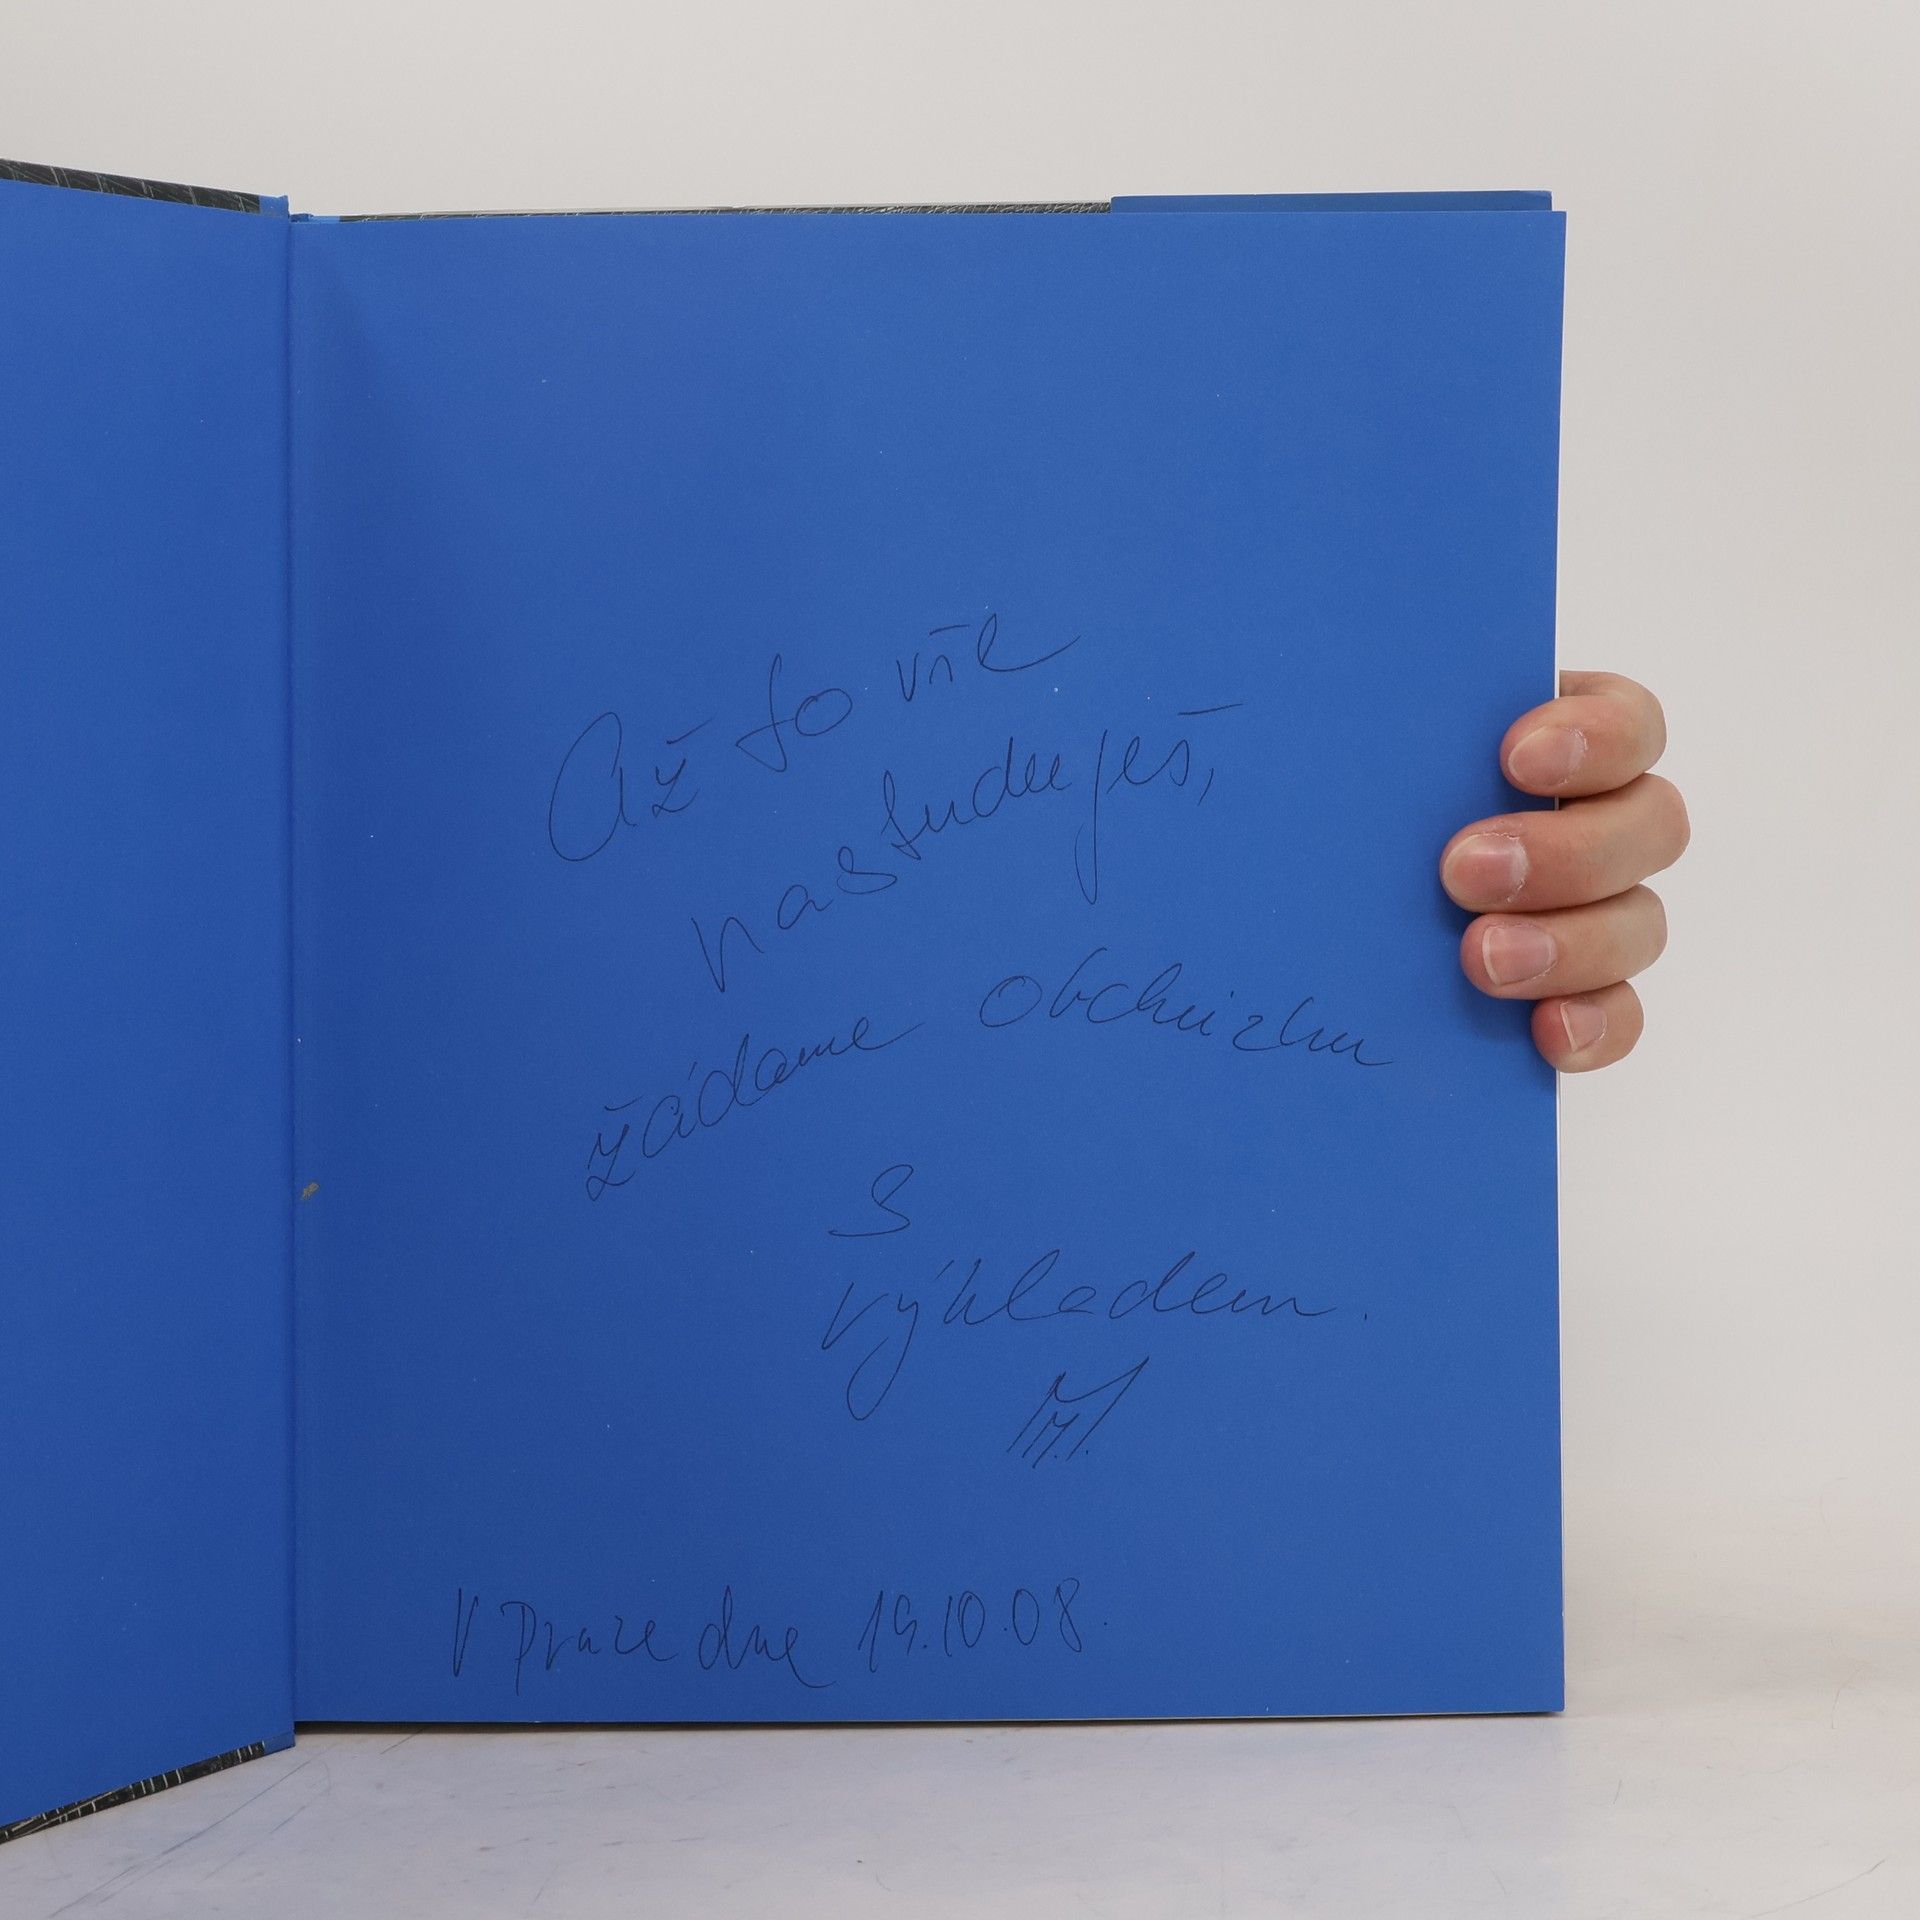 Až to vše
nastuduješ,
žádáme obchůzku
s
výkladem.
V Praze dne 19.10.08.